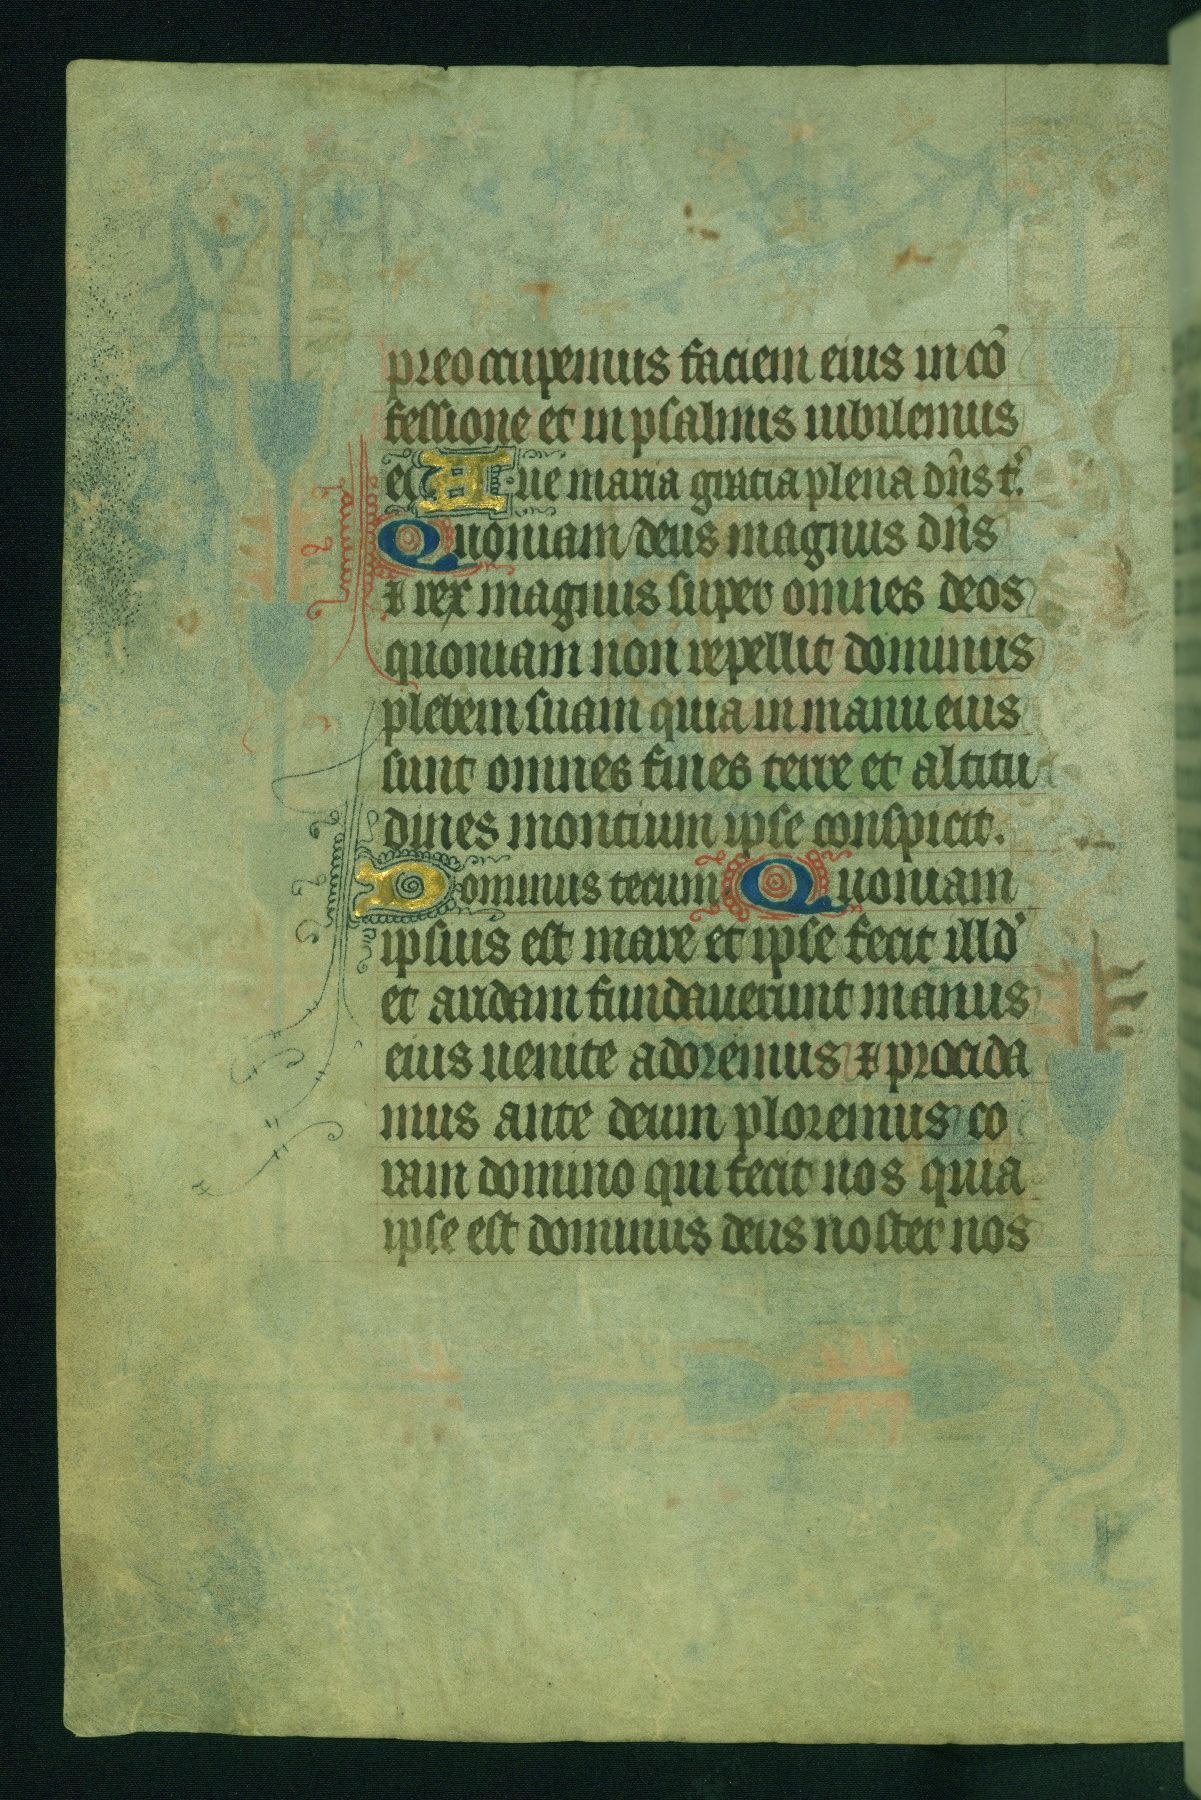 preoccupemus faciem eius in cō
fessione et in psalmis iubilemus
ei Aue maria gratia plena dn̄s t̄.
Quoniam deus magnus dn̄s
⁊ rex magnus super omnes deos
quoniam non repellit dominus
plebem suam quia in manu eius
sunt omnes fines terre et altitu
dines montium ipse conspicit.
Dominus tecum Quoniam
ipsius est mare et ipse fecit illd̾
et aridam fundauerunt manus
eius uenite adoremus ⁊ procida
mus ante deum ploremus co
ram domino qui fecit nos quia
ipse est dominus deus noster nos